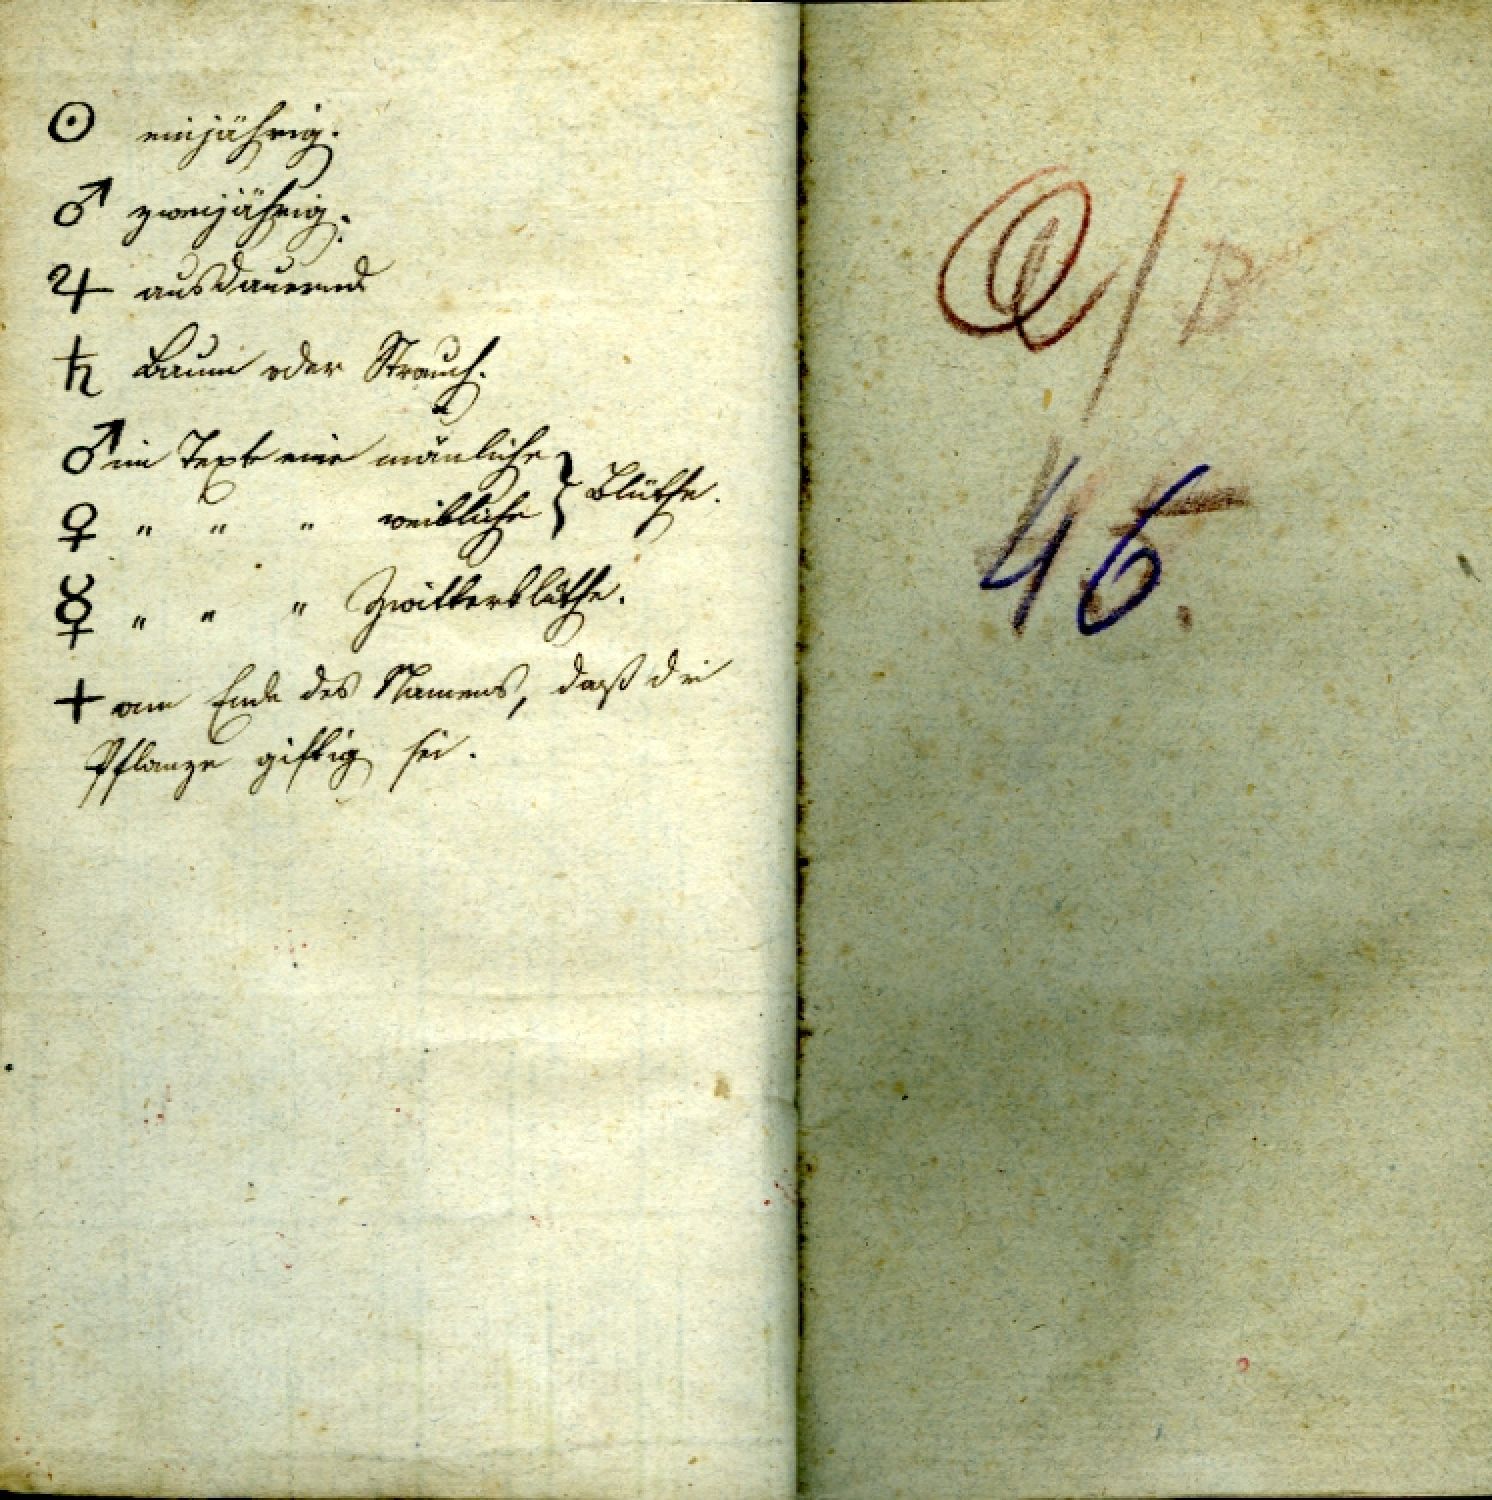 ☉ einjährig.
♂ zweijährig.
♃ ausdauernd
♄ Baum oder Strauch.
♂ im Text eine mänliche } Blüthe.
♀ " " " weibliche
☿ " " " Zwitterblüthe.
+ am Ende des Namens, daß die
Pflanze giftig sei.
B
46.